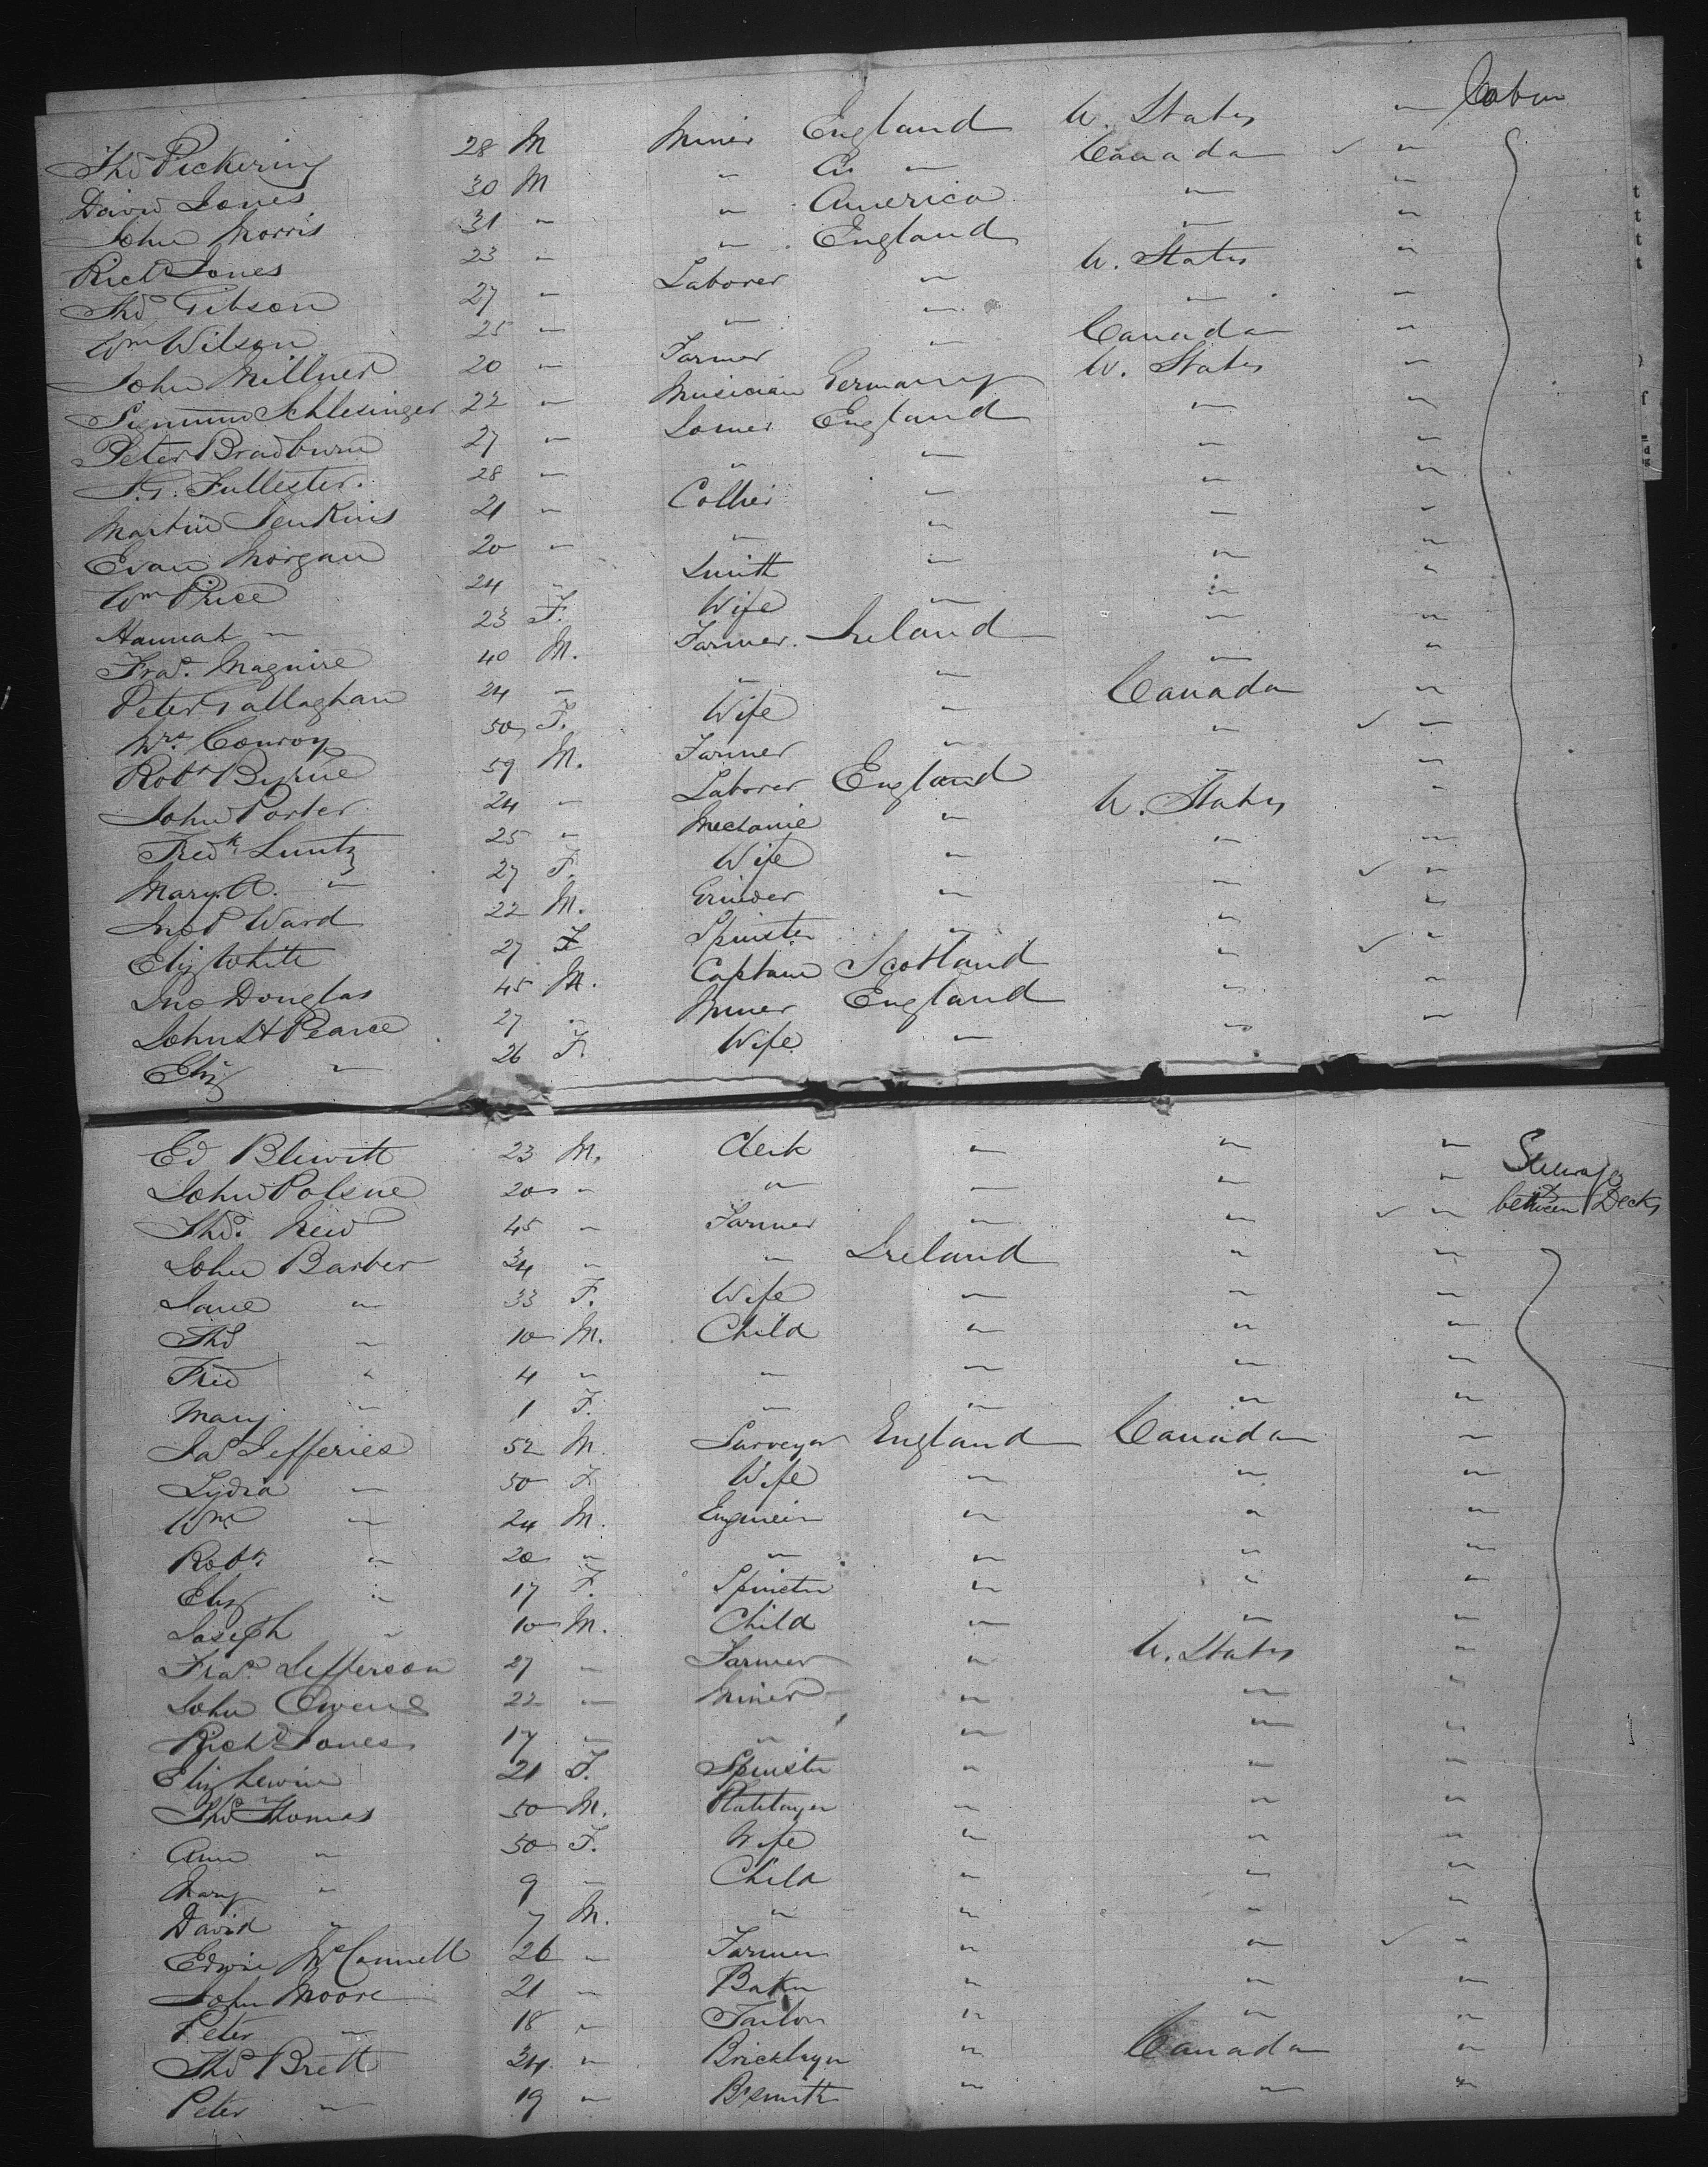 Thos Pickering 28 M Miner England U. States " Cabin
David Jones 30 M " " Canada "
John Morris 31 " " America " "
Richd Jones 23 " " England " "
Thos Gibson 27 " Laborer " U. States "
Wm Wilson 25 " " " " "
John Millner 20 " Farmer " Canada "
Schlesinger 22 " Musician Germany U. States "
Peter Bradburn 27 " England " "
28 " " " " "
Martin Jenkins 21 " Collier " " "
Evan Morgan 20 " " " " "
Wm Price 24 " Smith " " "
Hannah " 23 F. Wife " " "
Fras. Maguire 40 M. Farmer. Ireland " "
Peter Gallaghan 24 " " " " "
Mrs. Conroy 50 F. Wife " Canada "
Robt Byrne 59 M. Farmer " " "
John Porter 24 " Laborer England " "
Fredk Luntz 25 " Mechanic " U. States "
Mary A. " 27 F. Wife " " "
Jno P Ward 22 M. Grinder " " "
Eliz White 27 F Spinster " " "
Jno Douglas 45 M. Captain Scotland " "
John H Pearce 27 " Miner England " "
Eliz " 26 F. Wife " " "
Ed Blewitt 23 M. Clerk " " " Steerage
John Polsue 20 " " " " " between Decks
Thos. New 45 " Farmer " " "
John Barber 34 " " Ireland " "
Jane " 33 F. Wife " " "
Thos " 10 M. Child " " "
Fred " 4 " " " " "
Mary " 1 F. " " " "
Jas Jefferies 52 M. Surveyor England Canada "
Lydia " 50 F Wife " " "
Wm " 24 M. Engineer " " "
Robt. " 20 " " " " "
Eliz " 17 F. Spinster " " "
Joseph " 10 M. Child " " "
Fras. Jefferson 27 " Farmer " U. States "
John Owens 22 " Miner " " "
Richd Jones 17 " " " " "
Eliz Lewin 21 F. Spinster " " "
Thos Thomas 50 M. Platelayer " " "
Ann " 50 F. Wife " " "
Mary " 9 " Child " " "
David " 7 M. " " " "
Edwin McConnell 26 " Farmer " " "
John Moore 21 " Baker " " "
Peter " 18 " Tailor " " "
Thos Brett 34 " Bricklayer " Canada "
Peter " 19 " Bsmith " " "